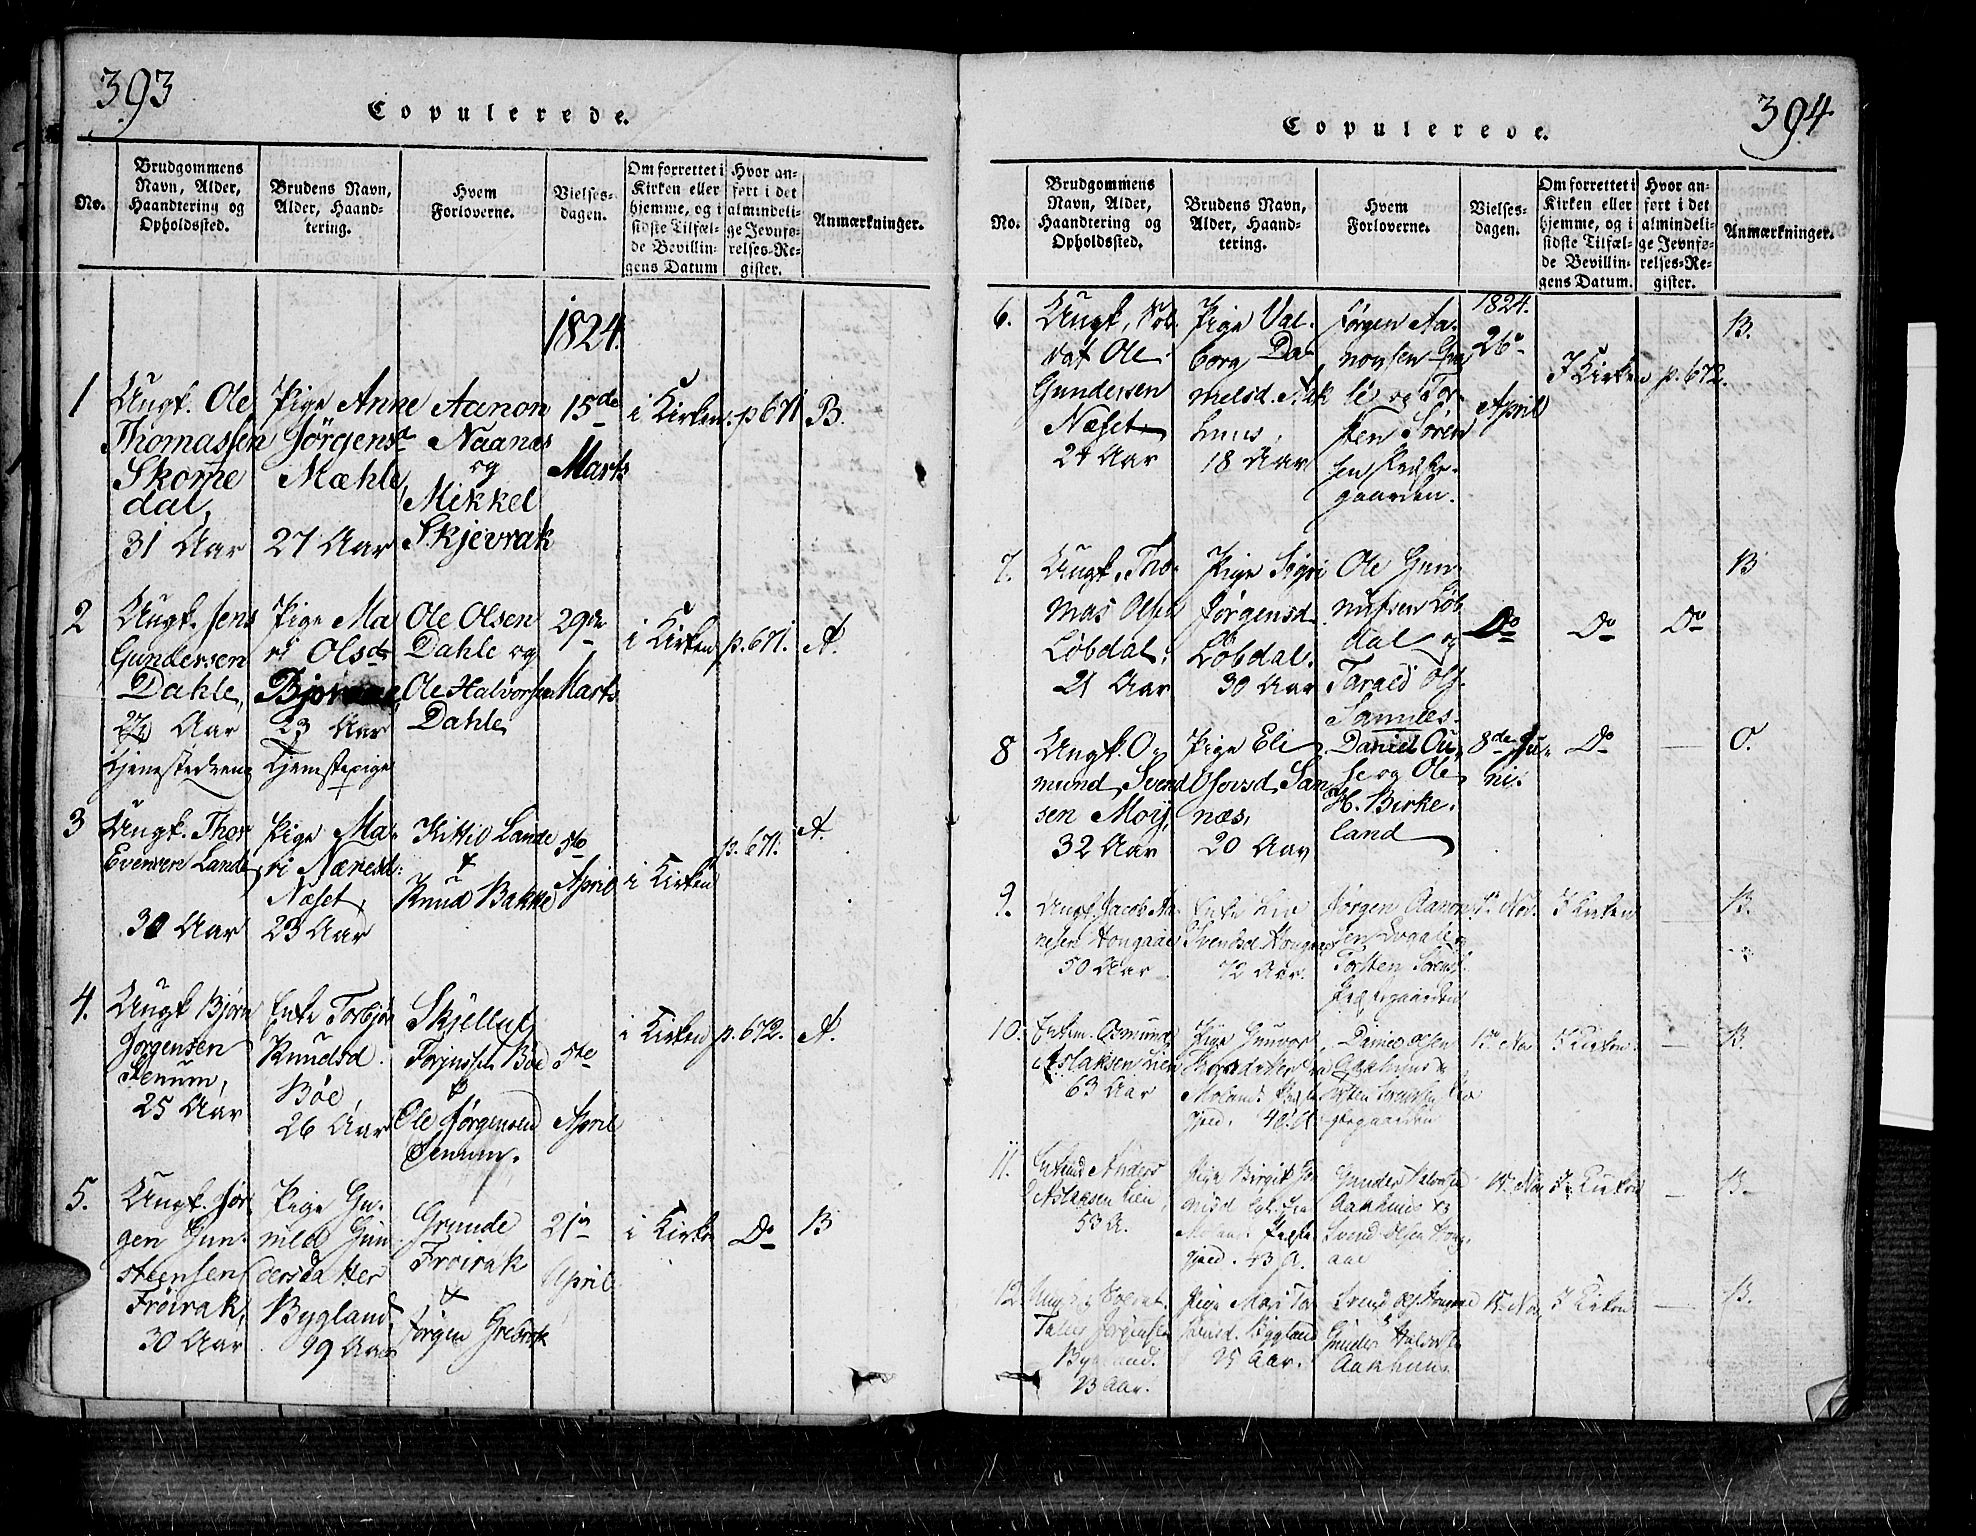 393
Copulerede.
No.
Brudgommens Navn, Alder, Haandtering og Opholdssted.
Brudens Navn, Alder, Haandtering.
Hvem Forloverne.
Vielsesdagen.
Om forrettet i Kirken eller hjemme, og i sidste Tilfælde Bevillingens Datum
Hvor anført i det almindelige Jevnførelses-Register.
Anmærkninger.
1824.
1
Ungk. Ole
Thomassen
Skomedal,
31 Aar
Pige Anne
Jörgensd
Mæhle,
27 Aar
Aanon
Naanas
og
Mikkel
Skjevrak
15de
Marts
i Kirken
p 671
B.
2
Ungk. Jens
Gundersen
Dahle,
Aar
Tjenestedreng
Pige Ma
ri Olsdr
23 Aar
Tjenestepige
Ole Olsen
Dahle og
Ole Halvorsen
Dahle
29de
Marts
i Kirken
p. 671.
A.
3
Ungk. Thor
Evensen Lande
30 Aar
Pige Ma-
ri
Næset,
23 Aar
Kittil Lande
&
Knud Bakke
5te
April
i Kirken
p. 671.
A.
4.
Ungk Bjørn
Jørgensen
Senum,
25 Aar
Enke Torbjør
Knudsd.
Bøe,
26 Aar
Skjelluf
Torjussen Bøe
&
Ole Jørgensen
Senum.
5te
April
i Kirken
p. 672.
A.
5.
Ungk. Jør
gen Gun-
steensen
Frøirak,
30 Aar
Pige Gu-
nild Gun
dersdatter
Bygland
Aar
Grunde
Frøirak
&
Jørgen Grebrok
21de
April
i Kirke
Do
B
394
Copulerede.
No.
Brudgommens Navn, Alder, Haandtering og Opholdssted.
Brudens Navn, Alder, Haandtering.
Hvem Forloverne.
Vielsesdagen.
Om forrettet i Kirken eller hjemme, og i sidste Tilfælde Bevillingens Datum.
Hvor anført i det almindelige Jevnførelses-Register.
Anmærkninger.
6.
Ungk, Sol-
dat Ole
Gundersen
Næset
24 Aar
Pige Val-
borg Da-
nielsd. Aak
huus,
18 Aar
Jørgen Aa-
nonsen
og Tor-
sten Søren
sen Præste-
gaarden.
1824.
26de
April
I Kirken
p. 672.
B.
7.
Ungk. Tho-
mas Olsen
Løbdal,
21 Aar
Pige Sigri
Jørgensd.
Løbdal.
30 Aar
Ole Gun-
nufsen Løb
dal og
Tarald Ols.
Samnes.
Do
Do
Do
B
8
Ungk. O-
mund Svend
sen Moy,
32 Aar
Pige Eli
Osovsd. San
næs,
20 Aar
Daniel Ou-
se og Ole
H. Birke-
land
8de Ju-
ni.
Do
—
O.
9.
Ungk. Jacob
Hongaae
50 Aar
Enke Liv
Svendsd. Hongaae
72 Aar.
Jørgen Aanon
sen
Torsten Sørens.
Præstegaarden
1. Nov.
I Kirken
—
B.
10.
Enkem. Osmund
Aslaksen Lien
63 Aar
Pige Gunvor
Moland Præste
gjed. 40 A.
Daniel Olsen
Aakhuus &
Torsten Sørensen Præ
stegaarden
15 Nov
I Kirken
—
B.
11.
Enkem. Anders
Aslaksen Lien,
53 A.
Pige Birgit
Moland Præste
gjed. 43 A.
Gunder Halvorsen
Aakhuus &
Svend Olsen Hon
gaae
15. Nov
I Kirken
—
B.
12
Ungk.
Jørgensen
Bygland.
23 Aar.
Pige Mari Tor
stensd. Bygland
25 Aar.
Svend Ols. Hongaae
&
Gunder Halvorsen
Aakhuus
15. Nov
I Kirken
—
B.